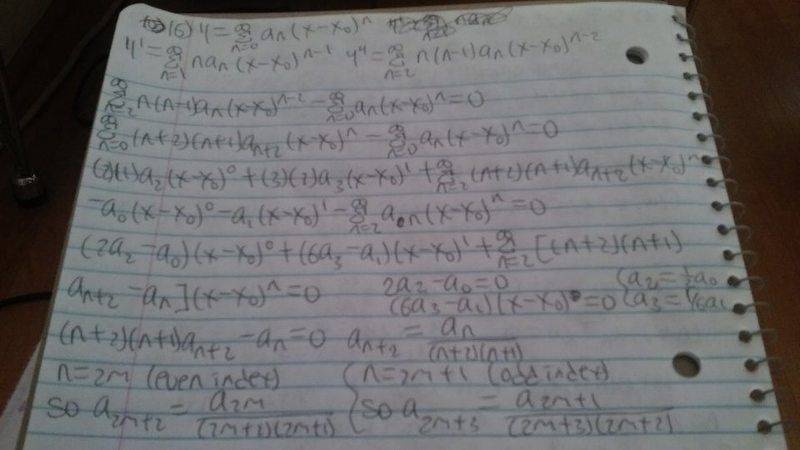 (6) y = ∑_{n=0}^∞ a_n(x-x_0)^n
y' = ∑_{n=1}^∞ na_n(x-x_0)^{n-1} y'' = ∑_{n=2}^∞ n(n-1)a_n(x-x_0)^{n-2}
∑_{n=2}^∞ n(n-1)a_n(x-x_0)^{n-2} - ∑_{n=0}^∞ a_n(x-x_0)^n = 0
∑_{n=0}^∞ (n+2)(n+1)a_{n+2}(x-x_0)^n - ∑_{n=0}^∞ a_n(x-x_0)^n = 0
(2)(1)a_2(x-x_0)^0 + (3)(2)a_3(x-x_0)^1 + ∑_{n=2}^∞ (n+2)(n+1)a_{n+2}(x-x_0)^n
-a_0(x-x_0)^0 - a_1(x-x_0)^1 - ∑_{n=2}^∞ a_n(x-x_0)^n = 0
(2a_2 - a_0)(x-x_0)^0 + (6a_3 - a_1)(x-x_0)^1 + ∑_{n=2}^∞ [(n+2)(n+1)
a_{n+2} - a_n](x-x_0)^n = 0 2a_2 - a_0 = 0 { a_2 = 1/2 a_0
(6a_3 - a_1)(x-x_0) = 0 { a_3 = 1/6 a_1
(n+2)(n+1)a_{n+2} - a_n = 0 a_{n+2} = a_n/((n+2)(n+1))
n = 2m (even index) { n = 2m+1 (odd index)
so a_{2m+2} = a_{2m}/((2m+2)(2m+1)) { so a_{2m+3} = a_{2m+1}/((2m+3)(2m+2))